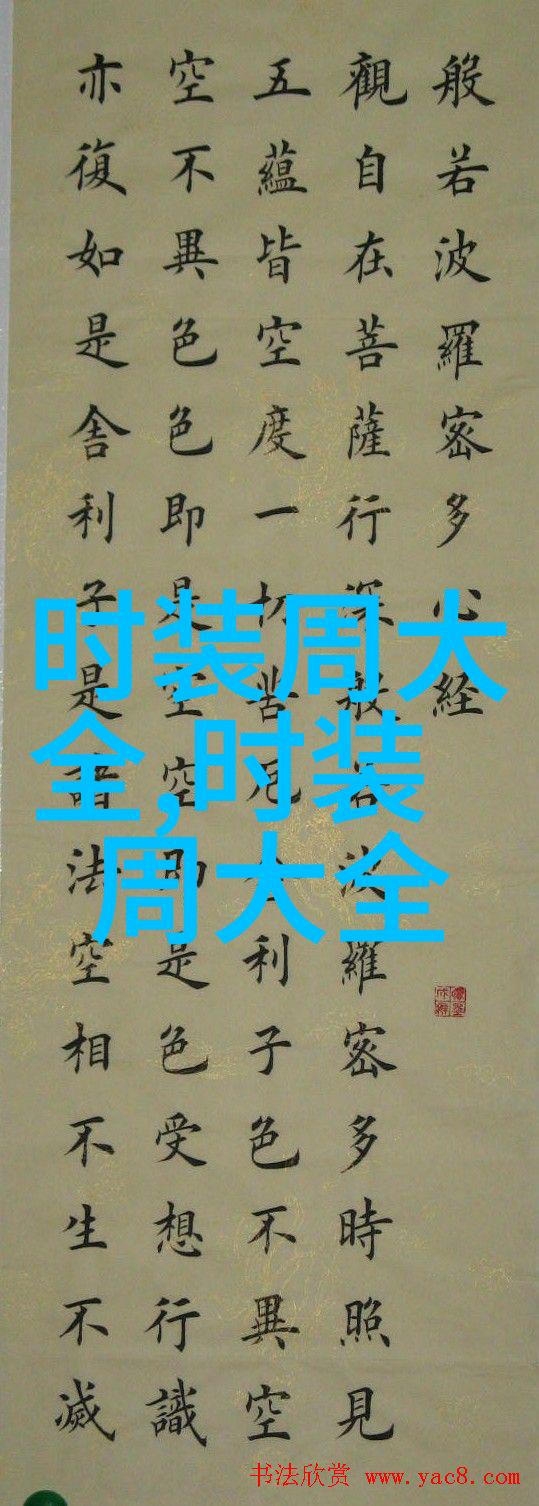 般若波羅密多心経
觀自在菩薩行深般若波羅密多時照見
五蘊皆空度一切苦厄舍利子色不異空
空不異色色即是空空即是色受想行識
亦復如是舍利子是諸法空相不生不滅
时装周大
全,时装
周大全
书法欣赏 www.yac8.com